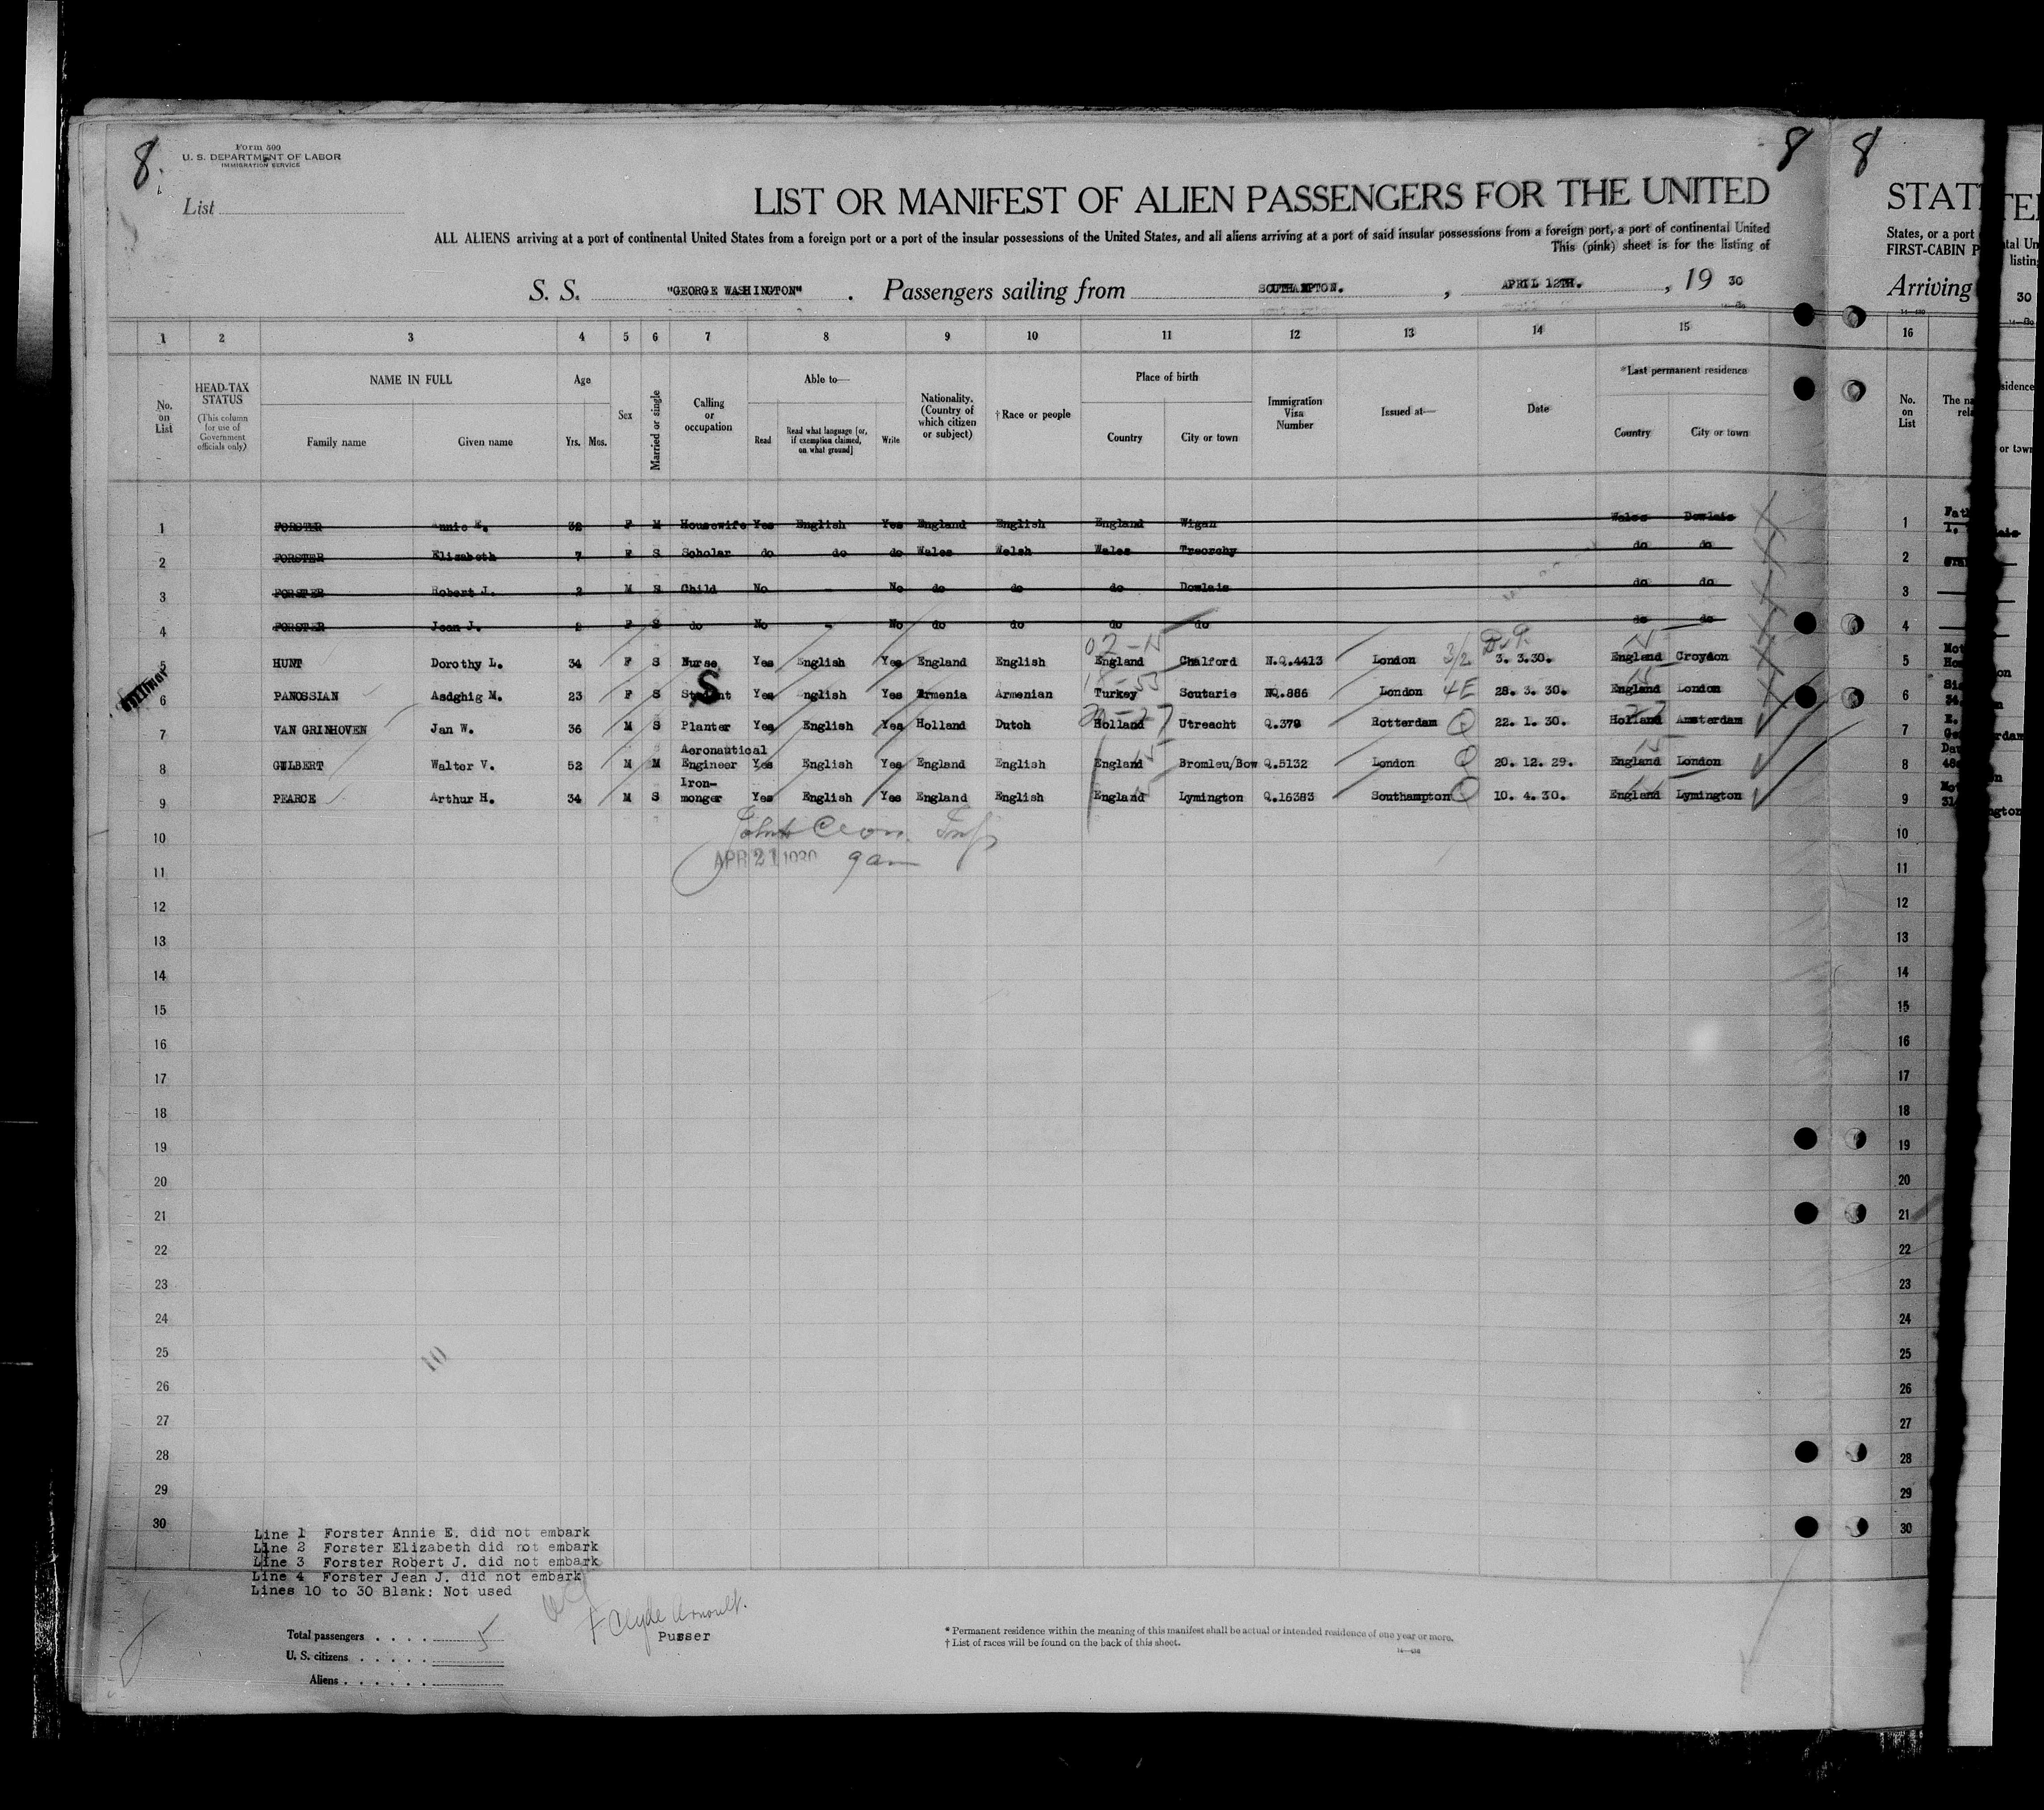 8.
8
8
Form 500
U. S. DEPARTMENT OF LABOR
IMMIGRATION SERVICE
List
LIST OR MANIFEST OF ALIEN PASSENGERS FOR THE UNITED
STAT
ALL ALIENS arriving at a port of continental United States from a foreign port or a port of the insular possessions of the United States, and all aliens arriving at a port of said insular possessions from a foreign port, a port of continental United
States, or a port
This (pink) sheet is for the listing of
FIRST-CABIN P
S. S. "GEORGE WASHINGTON". Passengers sailing from SOUTHAMPTON., APRIL 12TH., 19 30
Arriving
1 2 3 4 5 6 7 8 9 10 11 12 13 14 15 16
No. on List
HEAD-TAX STATUS
(This column for use of Government officials only)
NAME IN FULL
Family name Given name
Age
Yrs. Mos.
Sex
Married or single
Calling or occupation
Able to—
Read
Read what language [or, if exemption claimed, on what ground]
Write
Nationality. (Country of which citizen or subject)
†Race or people
Place of birth
Country City or town
Immigration Visa Number
Issued at—
Date
*Last permanent residence
Country City or town
No. on List
1 FORSTER Annie E. 32 F M Housewife Yes English Yes England English England Wigan Wales Dowlais 1
2 FORSTER Elizabeth 7 F S Scholar do do do Wales Welsh Wales Treorchy do do 2
3 FORSTER Robert J. 2 M S Child No - No do do do Dowlais do do 3
4 FORSTER Jean J. 2 F S do No - No do do do do do do 4
5 HUNT Dorothy L. 34 F S Nurse Yes English Yes England English England Chalford N.Q.4413 London 3/2 3. 3.30. England Croydon 5
6 PANOSSIAN Asdghig M. 23 F S Student Yes English Yes Armenia Armenian Turkey Scutarie NQ.886 London 4E 28. 3. 30. England London 6
S
7 VAN GRINHOVEN Jan W. 36 M S Planter Yes English Yes Holland Dutch Holland Utreacht Q.379 Rotterdam Q 22. 1. 30. Holland Amsterdam 7
8 GILBERT Walter V. 52 M M Aeronautical Engineer Yes English Yes England English England Bromleu/Bow Q.5132 London Q 20. 12. 29. England London 8
9 PEARCE Arthur H. 34 M S Iron-monger Yes English Yes England English England Lymington Q.16383 Southampton Q 10. 4. 30. England Lymington 9
10 10
APR 21 1930 9 am
11 11
12 12
13 13
14 14
15 15
16 16
17 17
18 18
19 19
20 20
21 21
22 22
23 23
24 24
25 25
10
26 26
27 27
28 28
29 29
30 30
Line 1 Forster Annie E. did not embark
Line 2 Forster Elizabeth did not embark
Line 3 Forster Robert J. did not embark
Line 4 Forster Jean J. did not embark
Lines 10 to 30 Blank: Not used
Total passengers . . . . 5
Purser
U. S. citizens . . . . .
Aliens . . . . . .
* Permanent residence within the meaning of this manifest shall be actual or intended residence of one year or more.
† List of races will be found on the back of this sheet.